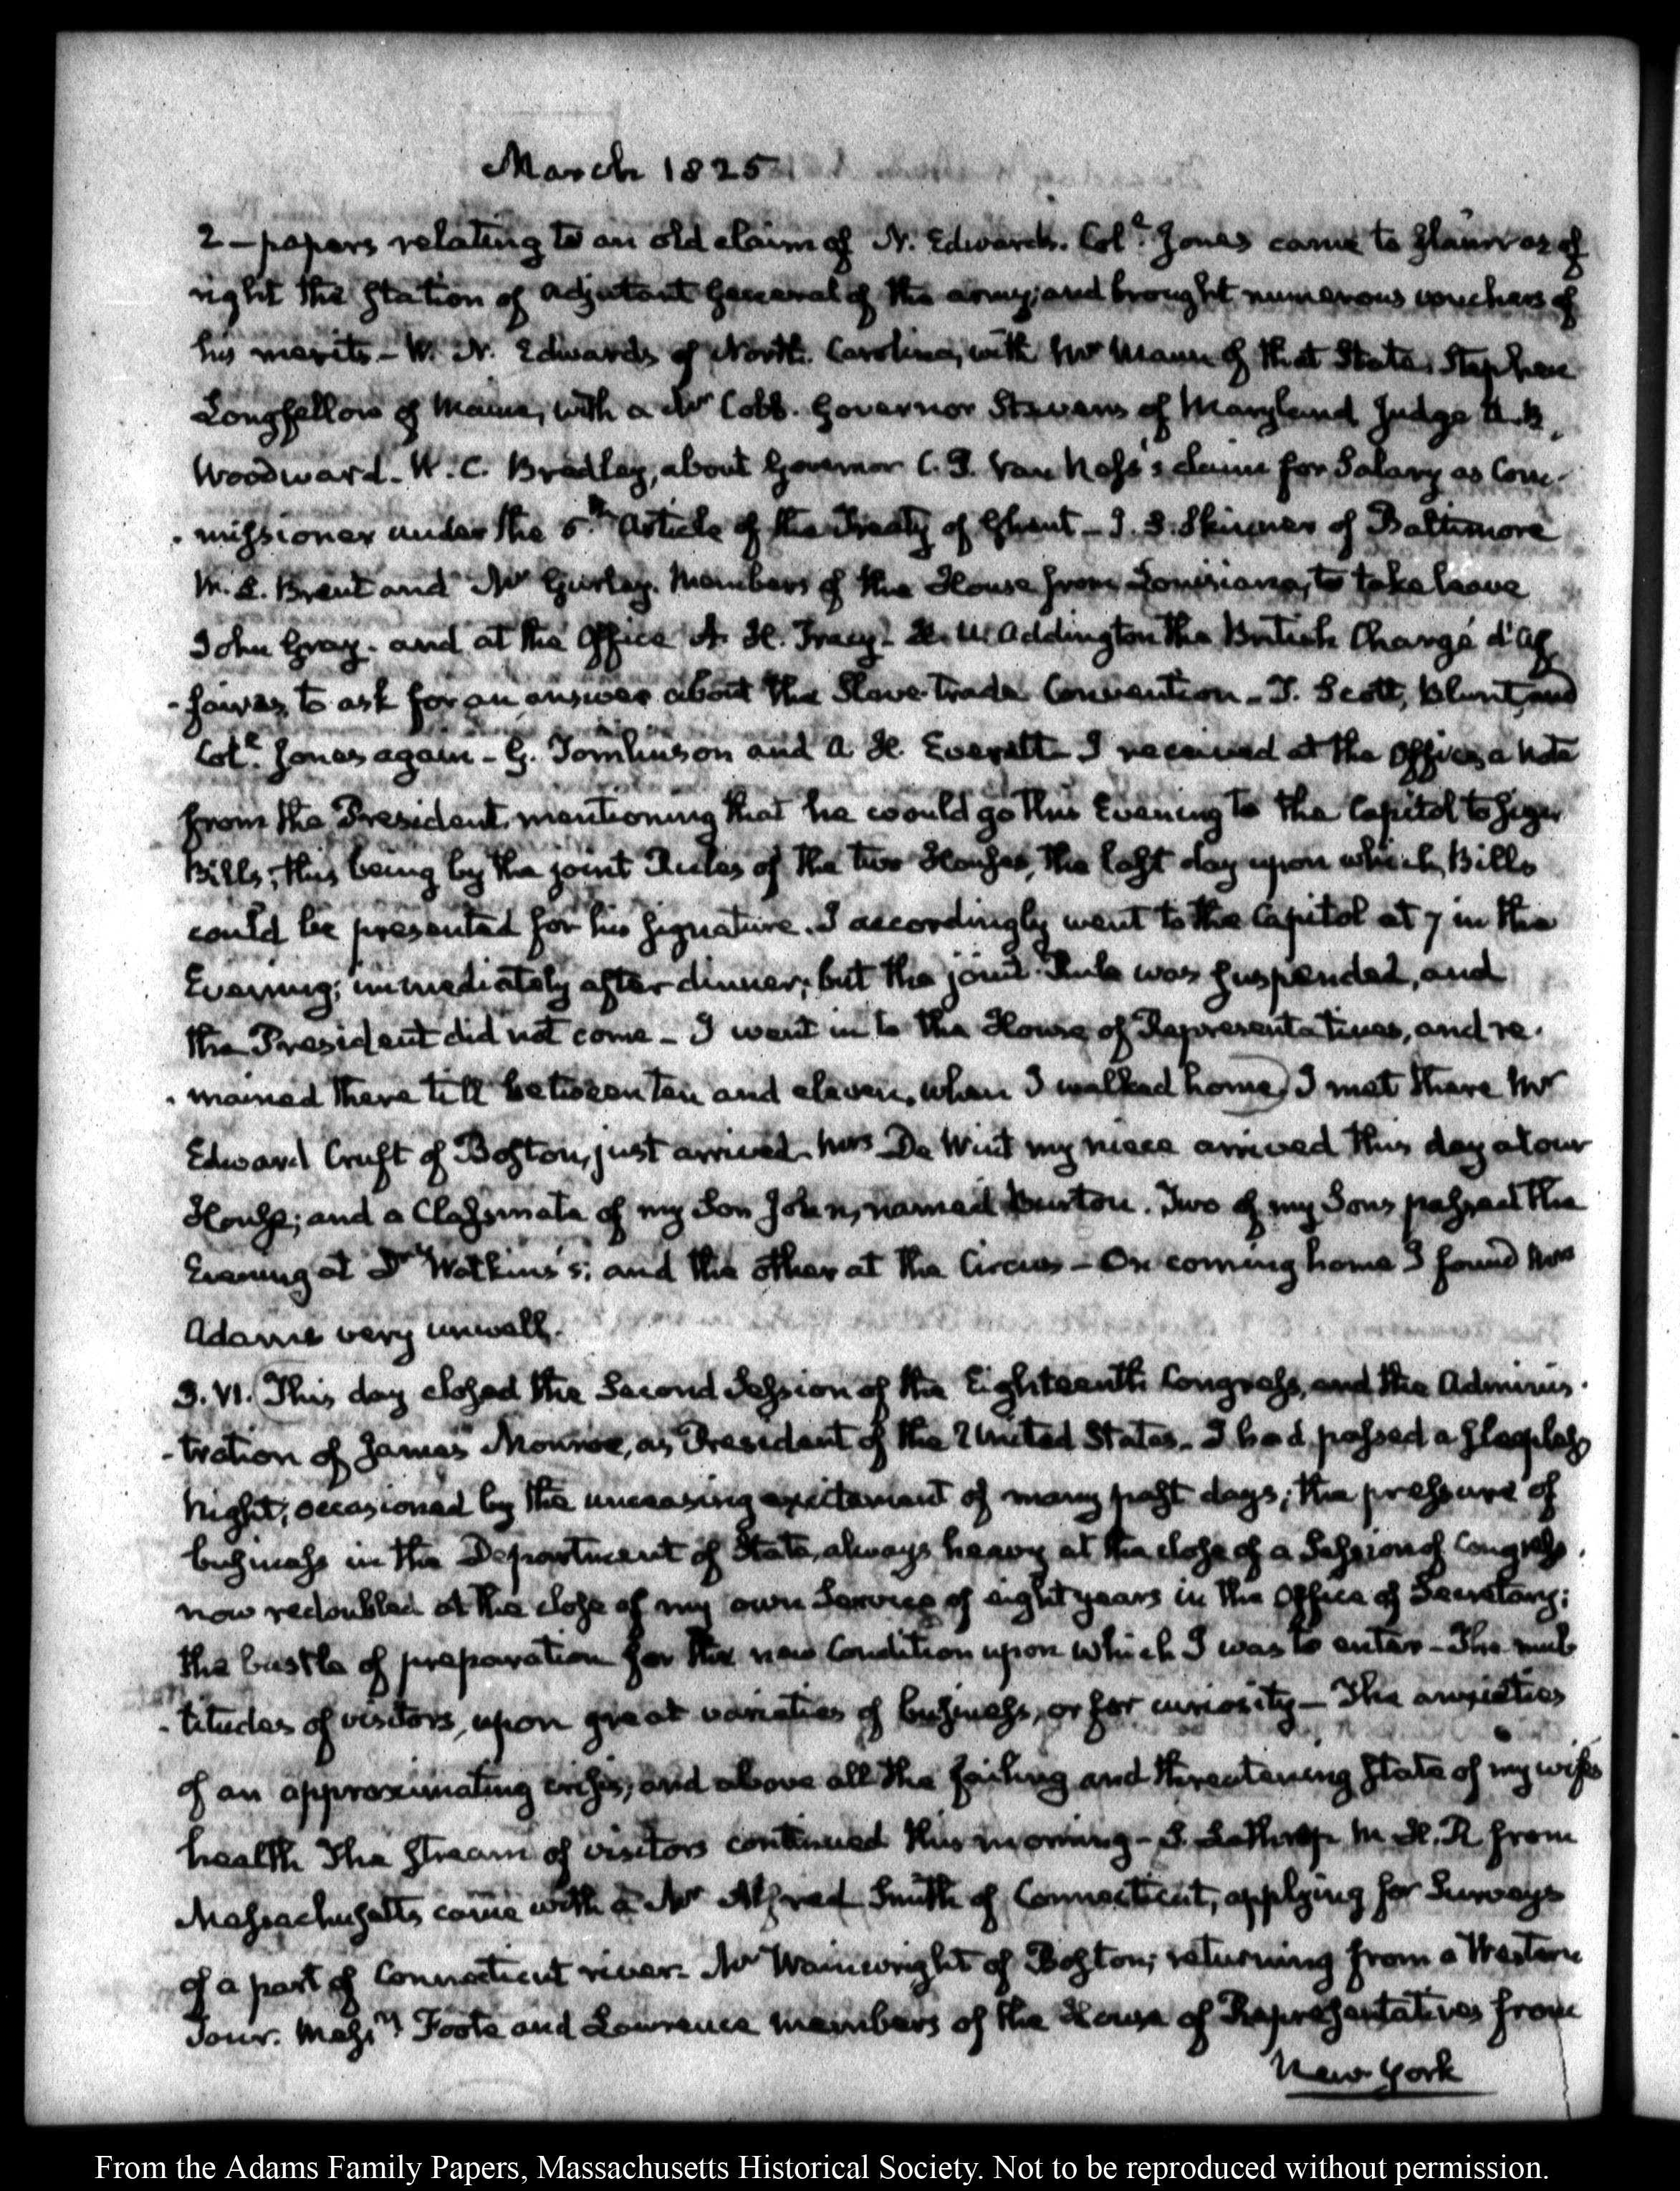 March 1825
2 — papers relating to an old claim of N. Edwards. Coll. Jones came to claim as of
right the Station of adjutant General of the army; and brought numerous vouchers of
his merits — W. N. Edwards of North Carolina, with Mr Mann of that State, Stephen
Longfellow of Maine, with a Mr Cobb. Governor Stevens of Maryland Judge A. B.
Woodward — W. C. Bradley, about Governor C. P. Van Ness's claim for Salary as Com-
-missioner under the 5th Article of the Treaty of Ghent — J. S. Skinner of Baltimore
W. L. Brent and Mr Gurley. Members of the House from Louisiana, to take leave
John Gray. and at the Office A. H. Tracy — H. U. Addington the British Chargé d'Af
-faires, to ask for an answer about the Slave-Trade Convention — J. Scott, Blunt, and
Coll. Jones again — G. Tomlinson and A. H. Everett — I received at the Office, a Note
from the President, mentioning that he would go this Evening to the Capitol to sign
Bills; this being by the joint Rules of the two Houses, the last day upon which, Bills
could be presented for his signature. I accordingly went to the Capitol at 7 in the
Evening; immediately after dinner; but the joint Rule was suspended, and
the President did not come — I went in to the House of Representatives, and re-
-mained there till between ten and eleven, when I walked home. I met there Mr
Edward Cruft of Boston, just arrived. Mrs De Wint my niece arrived this day at our
House; and a Classmate of my Son John, named Burton. Two of my Sons passed the
Evening at Dr Watkins's; and the other at the Circus — On coming home I found Mrs
Adams very unwell.
3. VI. This day closed the Second Session of the Eighteenth Congress, and the Adminis-
-tration of James Monroe, as President of the United States. I had passed a sleepless
Night; occasioned by the unceasing excitement of many past days; the pressure of
business in the Department of State, always heavy at the close of a Session of Congress,
now redoubled at the close of my own Service of eight years in the Office of Secretary;
the bustle of preparation for the new Condition upon which I was to enter — The mul
-titudes of visitors, upon great varieties of business, or for curiosity — The anxieties
of an approximating crisis; and above all the failing and threatening state of my wife's
health The stream of visitors continued this morning — S. Lathrop M. H. R. from
Massachusetts came with a Mr Alfred Smith of Connecticut, applying for Surveys
of a part of Connecticut river. Mr Wainwright of Boston; returning from a Western
Tour. Messrs Foote and Lawrence members of the House of Representatives from
New York
From the Adams Family Papers, Massachusetts Historical Society. Not to be reproduced without permission.